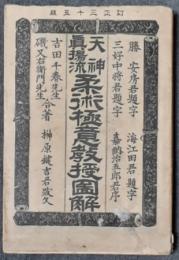 訂正三十五版
勝安房君題字
海江田君題字
三好中将君題字
嘉納治五郎君序
天神真揚流
柔術極意教授図解
吉田千春先生
磯又右衛門先生
合著
榊原鍵吉君跋文